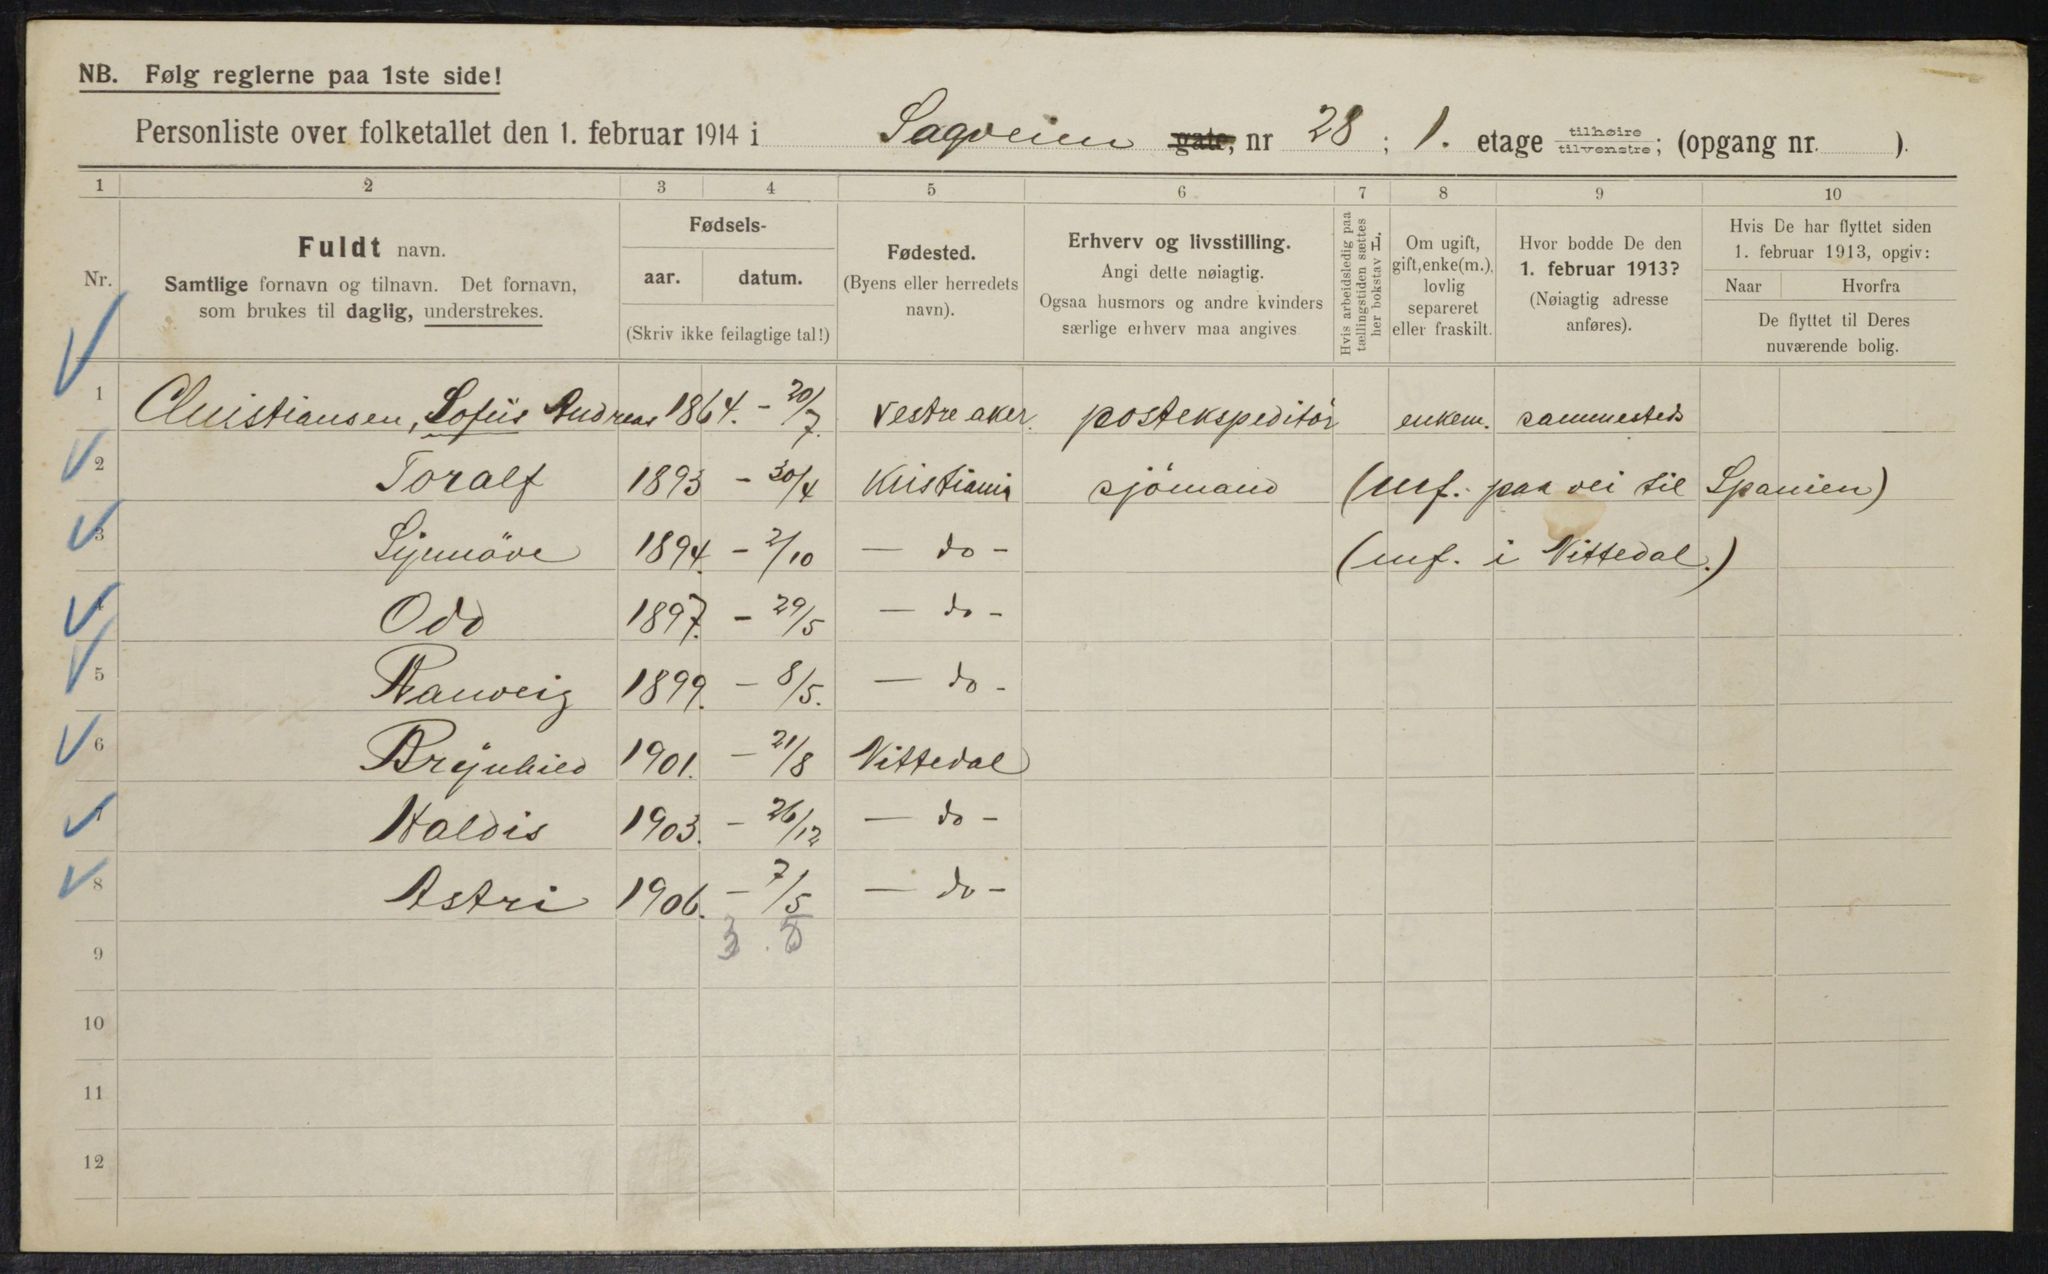 NB. Følg reglerne paa 1ste side!
Personliste over folketallet den 1. februar 1914 i Sagveien gate, nr 28 ; 1. etage tilhøire tilvenstre; (opgang nr. ).
1 2 3 4 5 6 7 8 9 10
Nr.
Fuldt navn.
Samtlige fornavn og tilnavn. Det fornavn,
som brukes til daglig, understrekes.
Fødsels-
aar. datum.
(Skriv ikke feilagtige tal!)
Fødested.
(Byens eller herredets
navn).
Erhverv og livsstilling.
Angi dette nøiagtig.
Ogsaa husmors og andre kvinders
særlige erhverv maa angives
Hvis arbeidsledig paa
tællingstiden sættes
her bokstav L.
Om ugift,
gift, enke(m.),
lovlig
separeret
eller fraskilt.
Hvor bodde De den
1. februar 1913?
(Nøiagtig adresse
anføres).
Hvis De har flyttet siden
1. februar 1913, opgiv:
Naar Hvorfra
De flyttet til Deres
nuværende bolig.
1 Christiansen, Sofus Andreas 1864. - 20/7. Vestre aker. postekspeditör enkem. sammesteds
2 Toralf 1893 - 30/4 Kristiania sjömand (mf. paa vei til Spanien)
3 Synnöve 1894. - 2/10 - do - (mf. i Nittedal.)
4 Odd 1897. - 29/5 - do -
5 Ranveig 1899. - 8/5. - do -
6 Brynhild 1901. - 21/8 Nittedal
7 Haldis 1903. - 26/12 - do -
8 Astri 1906. - 7/5 - do -
3. 5
9
10
11
12